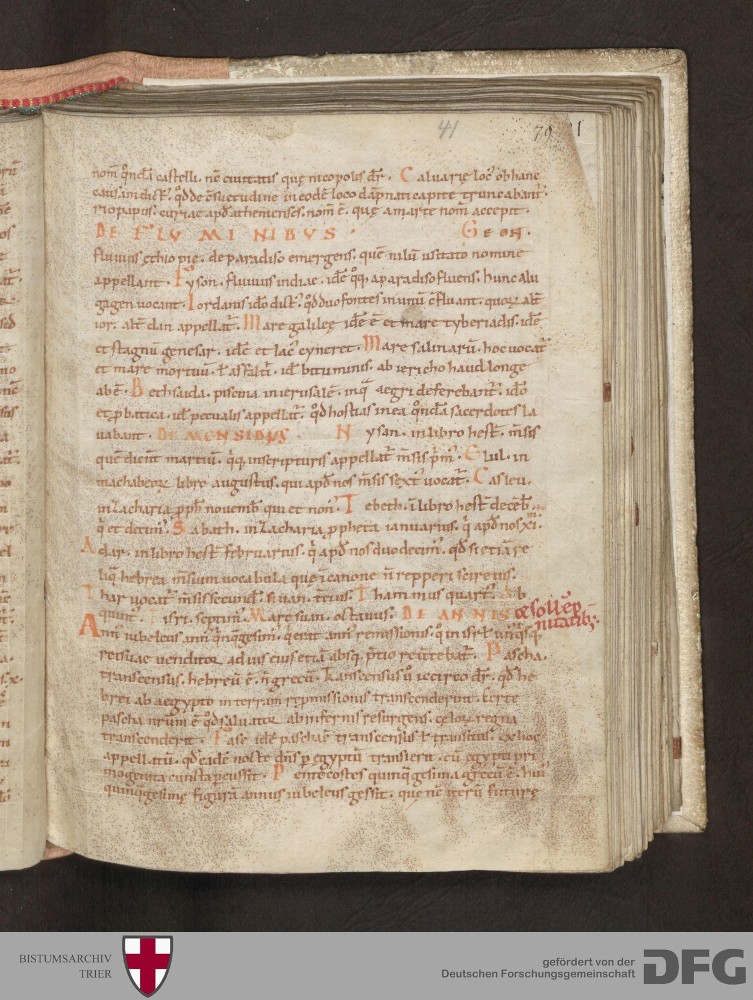 41
79 91
nom̄ q̊ndā castelli. nē ciuitatis quę nicopolis dr̄. Caluarię loc' ob hanc
causam dict'. q̊d de c̄suetudine in eodē loco dāpnati capite truncabant̄.
riopapus. curiae apđ athenienses. nom̄ ē. quę amarte nom̄ accepit.
DE FLUMINIBVS. GEON.
fluuius ęthiopię. de paradiso emergens. quē nilū usitato nomine
appellant. Fyson. fluuius indiae. idē q̊q; a paradiso fluens. hunc alii
gagen uocant. Iordanis idō dict'. q̊d duo fontes in unū c̄fluant. quorꝝ alt̄
ior. alt̄ dan appellat̄. Mare galileę idē ē et mare tyberiadis. idē
et stagnū genesar. idē et lac' cyneret. Mare salinarū. hoc uocat̄
et mare mortuū. ł asfalti. id ē bituminis. ab iericho haud longe
abē. Bethsaida. piscina in ierusalē. in q̄ aegri deferebant̄. idō
et ꝓbatica. id ē pecualis appellat̄. q̊d hostias in ea q̊ndā sacerdotes la
uabant. DE MENSIBVS. Nysan. in libro hest̄. m̄sis
quē dicim̄ martiū. q̄ q; in scripturis appellat̄ m̄sis p̄m'. Elul. in
machabeorꝝ libro augustus. qui apđ nos m̄sis sext' uocat̄. Casleu.
in zacharia ꝓph̄ nouemb̄ qui et non'. Tebeth. ī libro hest̄ decēb̄.
q̄ et decim'. Sabath. in zacharia ꝓpheta ianuarius. q̄ apđ nos xi.
Adar. in libro hest̄ februarius. q̄ apđ nos duodecim'. q̊d si etiā re
liq̄ hebrea m̄sium uocabula quę i canone n̄ repperi scire uis.
Thar uocat̄ m̄sis secund'. siuan. t̄cius. Thamnius quart'. Ab
quint'. Tisri. septim'. Maresuan. octauus. DE ANNIS
et sollēp
nitatib;
Anni iubeleus ann' q̄nq̄gesim'. q̄ erat ann' remissionis. q̄ in isrł un' q̄sq;
reisuae uenditor ad ius eius etiā absq; p̄tio reūtebat̄. Pascha.
transcensus. hebreū ē. n̄ grecū. Transcensus ū iccirco dr̄. q̊d he
brei ab aegypto in terram repmissionis transcenderint. Certe
pascha nrūm ē q̊d saluator ab infernis resurgens. celorꝝ regna
transcenderit. Fase idē paschae transcensus ł transitus. ex hoc
appellatū. q̊d eadē nocte dn̄s p̄ egyptū transierit. cū egypti pri
mogenita cuncta pcussit. Pentecostes quinq̄gesima grecū ē. hui'
quinquagesimę figurā annus iubeleus gessit. quę nē iterū futurę
BISTUMSARCHIV
TRIER
gefördert von der
Deutschen Forschungsgemeinschaft
DFG